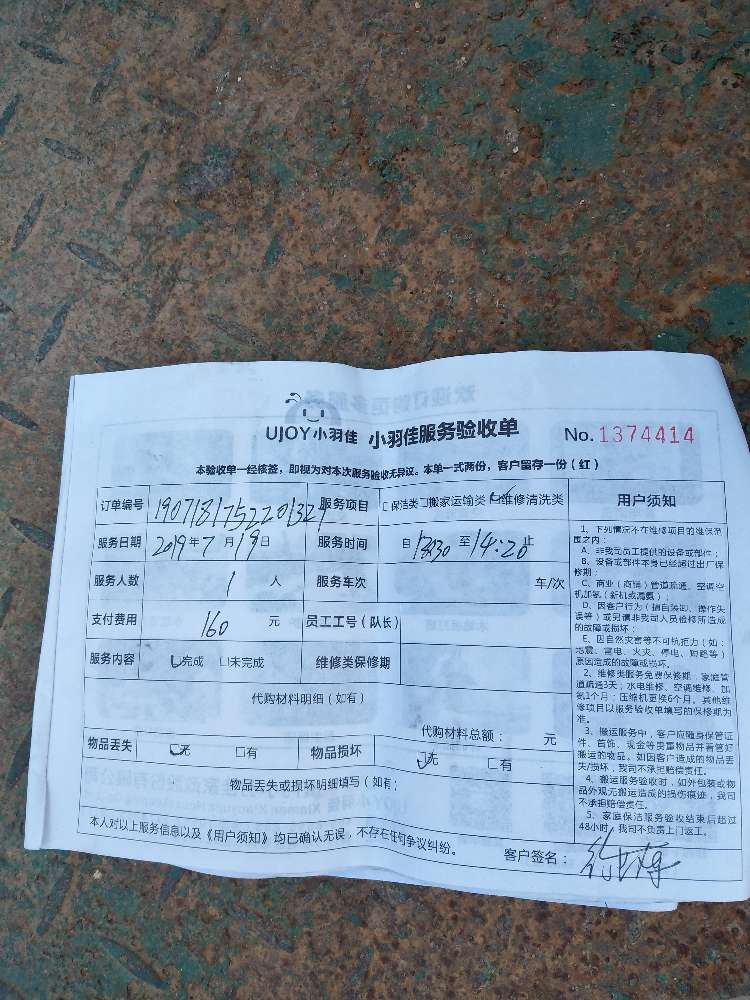 UJOY小羽佳 小羽佳服务验收单 No. 1374414
本验收单一经核签，即视为对本次服务验收无异议。本单一式两份，客户留存一份（红）
订单编号 190718175220132 服务项目 □保洁类□搬家运输类□维修清洗类 用户须知
服务日期 2019年7月19日 服务时间 自13:30至14:20止
服务人数 1 人 服务车次 车/次
支付费用 160 元 员工工号（队长）
服务内容 □完成 □未完成 维修类保修期
代购材料明细（如有）
代购材料总额： 元
物品丢失 □无 □有 物品损坏 □无 □有
物品丢失或损坏明细填写（如有）
本人对以上服务信息以及《用户须知》均已确认无误，不存在任何争议纠纷。
客户签名：
1、下列情况不在维修项目的维保范
围之内：
A、非我司员工提供的设备或部件；
B、设备或部件本身已经超过出厂保
修期；
C、商业（商铺）管道疏通、空调空
机加氨（新机或漏氨）；
D、因客户行为（擅自装卸、操作失
误等）或另请非我司人员检修所造成
的故障或损坏；
E、因自然灾害等不可抗拒力（如：
地震、雷电、火灾、停电、短路等）
原因造成的故障或损坏。
2、维修类服务免费保修期：家庭管
道疏通3天；水电维修、空调维修、加
氨1个月；压缩机更换6个月，其他维
修项目以服务验收单填写的保修期为
准。
3、搬运服务中，客户应随身保管证
件、首饰、现金等贵重物品并看管好
搬运的物品。如因客户造成的物品丢
失/损坏，我司不承担赔偿责任。
4、搬运服务验收时，如外包装或物
品外观无搬运造成的损伤痕迹，我司
不承担赔偿责任。
5、家庭保洁服务验收结束后超过
48小时，我司不负责上门返工。